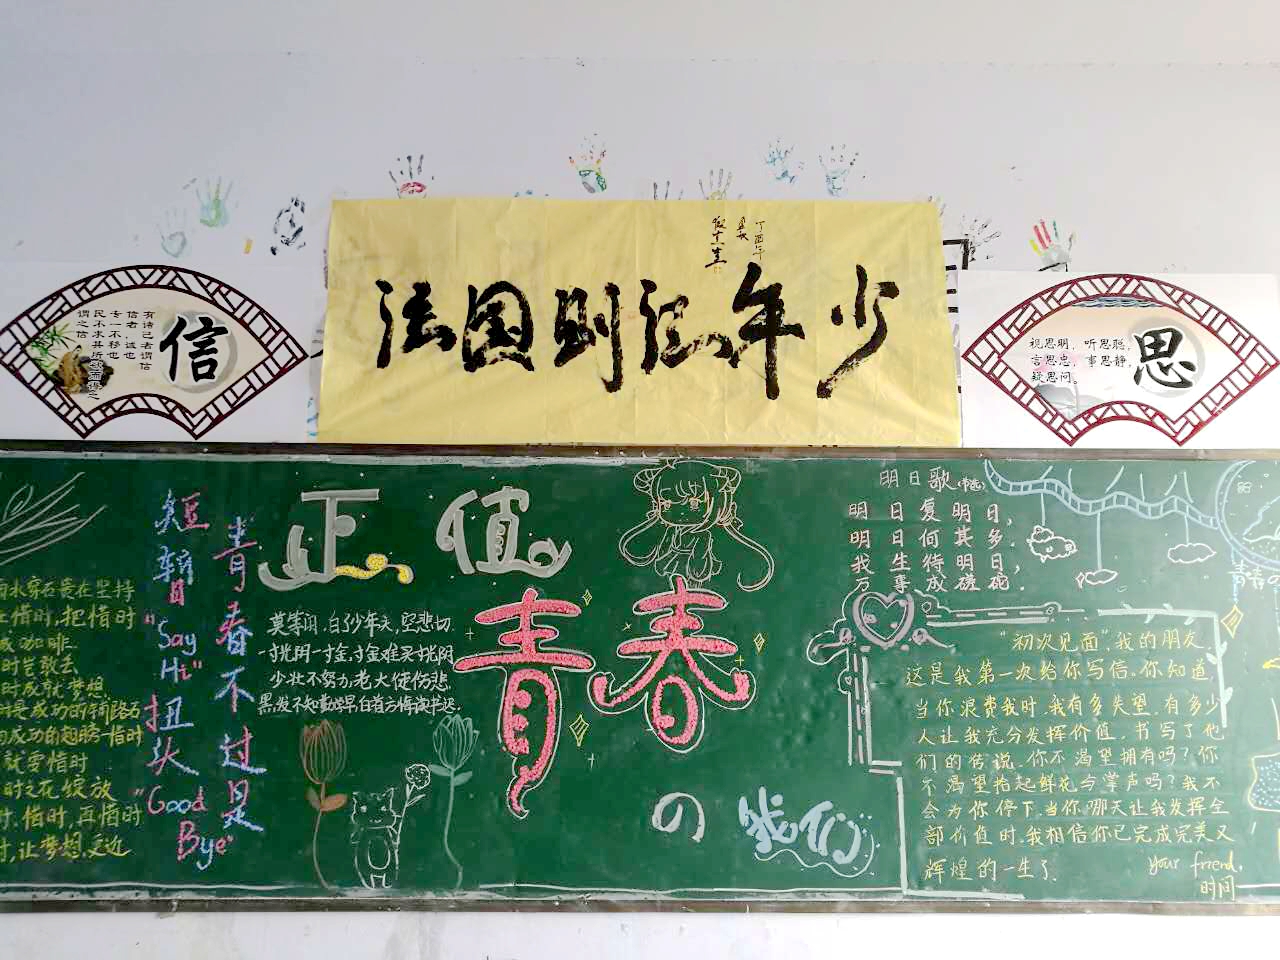 丁酉年
少年强则国强
信
有诸己者谓信
信者，诚也
专一不移也
民不求其所欲而得之
谓之信
思
视思明，听思聪，
言思忠，事思静，
疑思问。
水穿石贵在坚持
惜时，把惜时
咖啡
时成就梦想
是成功的铺路石
成功的翅膀惜时
就要惜时
时之花绽放
惜时，再惜时
让梦想更近
青春不过是
短暂
"Say
Hi"
扭头
"Good
Bye"
正值
青春
の我们
莫等闲，白了少年头，空悲切.
一寸光阴一寸金，寸金难买寸光阴
少壮不努力，老大徒伤悲.
黑发不知勤学早，白首方悔读书迟.
明日歌(节选)
明日复明日，
明日何其多，
我生待明日，
万事成蹉跎.
"初次见面"，我的朋友.
这是我第一次给你写信.你知道，
当你浪费我时.我有多失望.有多少
人让我充分发挥价值，书写了他
们的传说.你不渴望拥有吗？你
不渴望拾起鲜花与掌声吗？我不
会为你停下.当你哪天让我发挥全
部价值时.我相信你已完成完美又
辉煌的一生了.
your friend,
时间
青春の